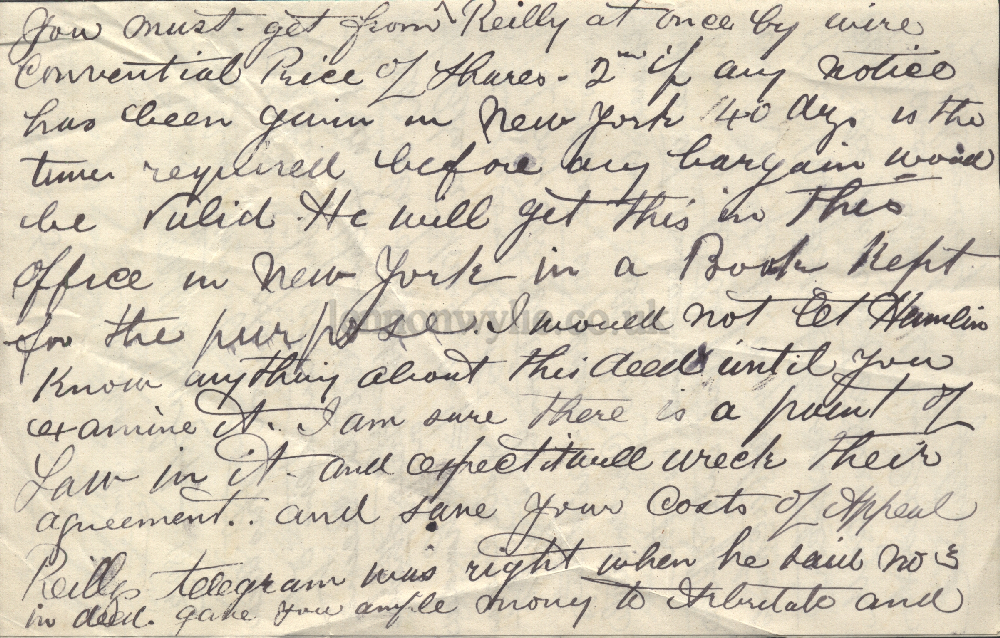 You must. get from Reilly at once by wire
Convential Price of Shares - 2nd if any notice
has been given in New York 40 dys is the
time required before any bargain would
be valid. He will get this in this
office in New York in a Book Kept
for the purpose. I would not let Hamlin
Know anything about this deed until you
examine it. I am sure there is a point of
Law in it - and expect it will wreck their
agreement.. and save your Costs of Appeal
Reillys telegram was right when he said No 3
in deed. gave you ample money to Arbitrate and
lennonwylie.co.uk